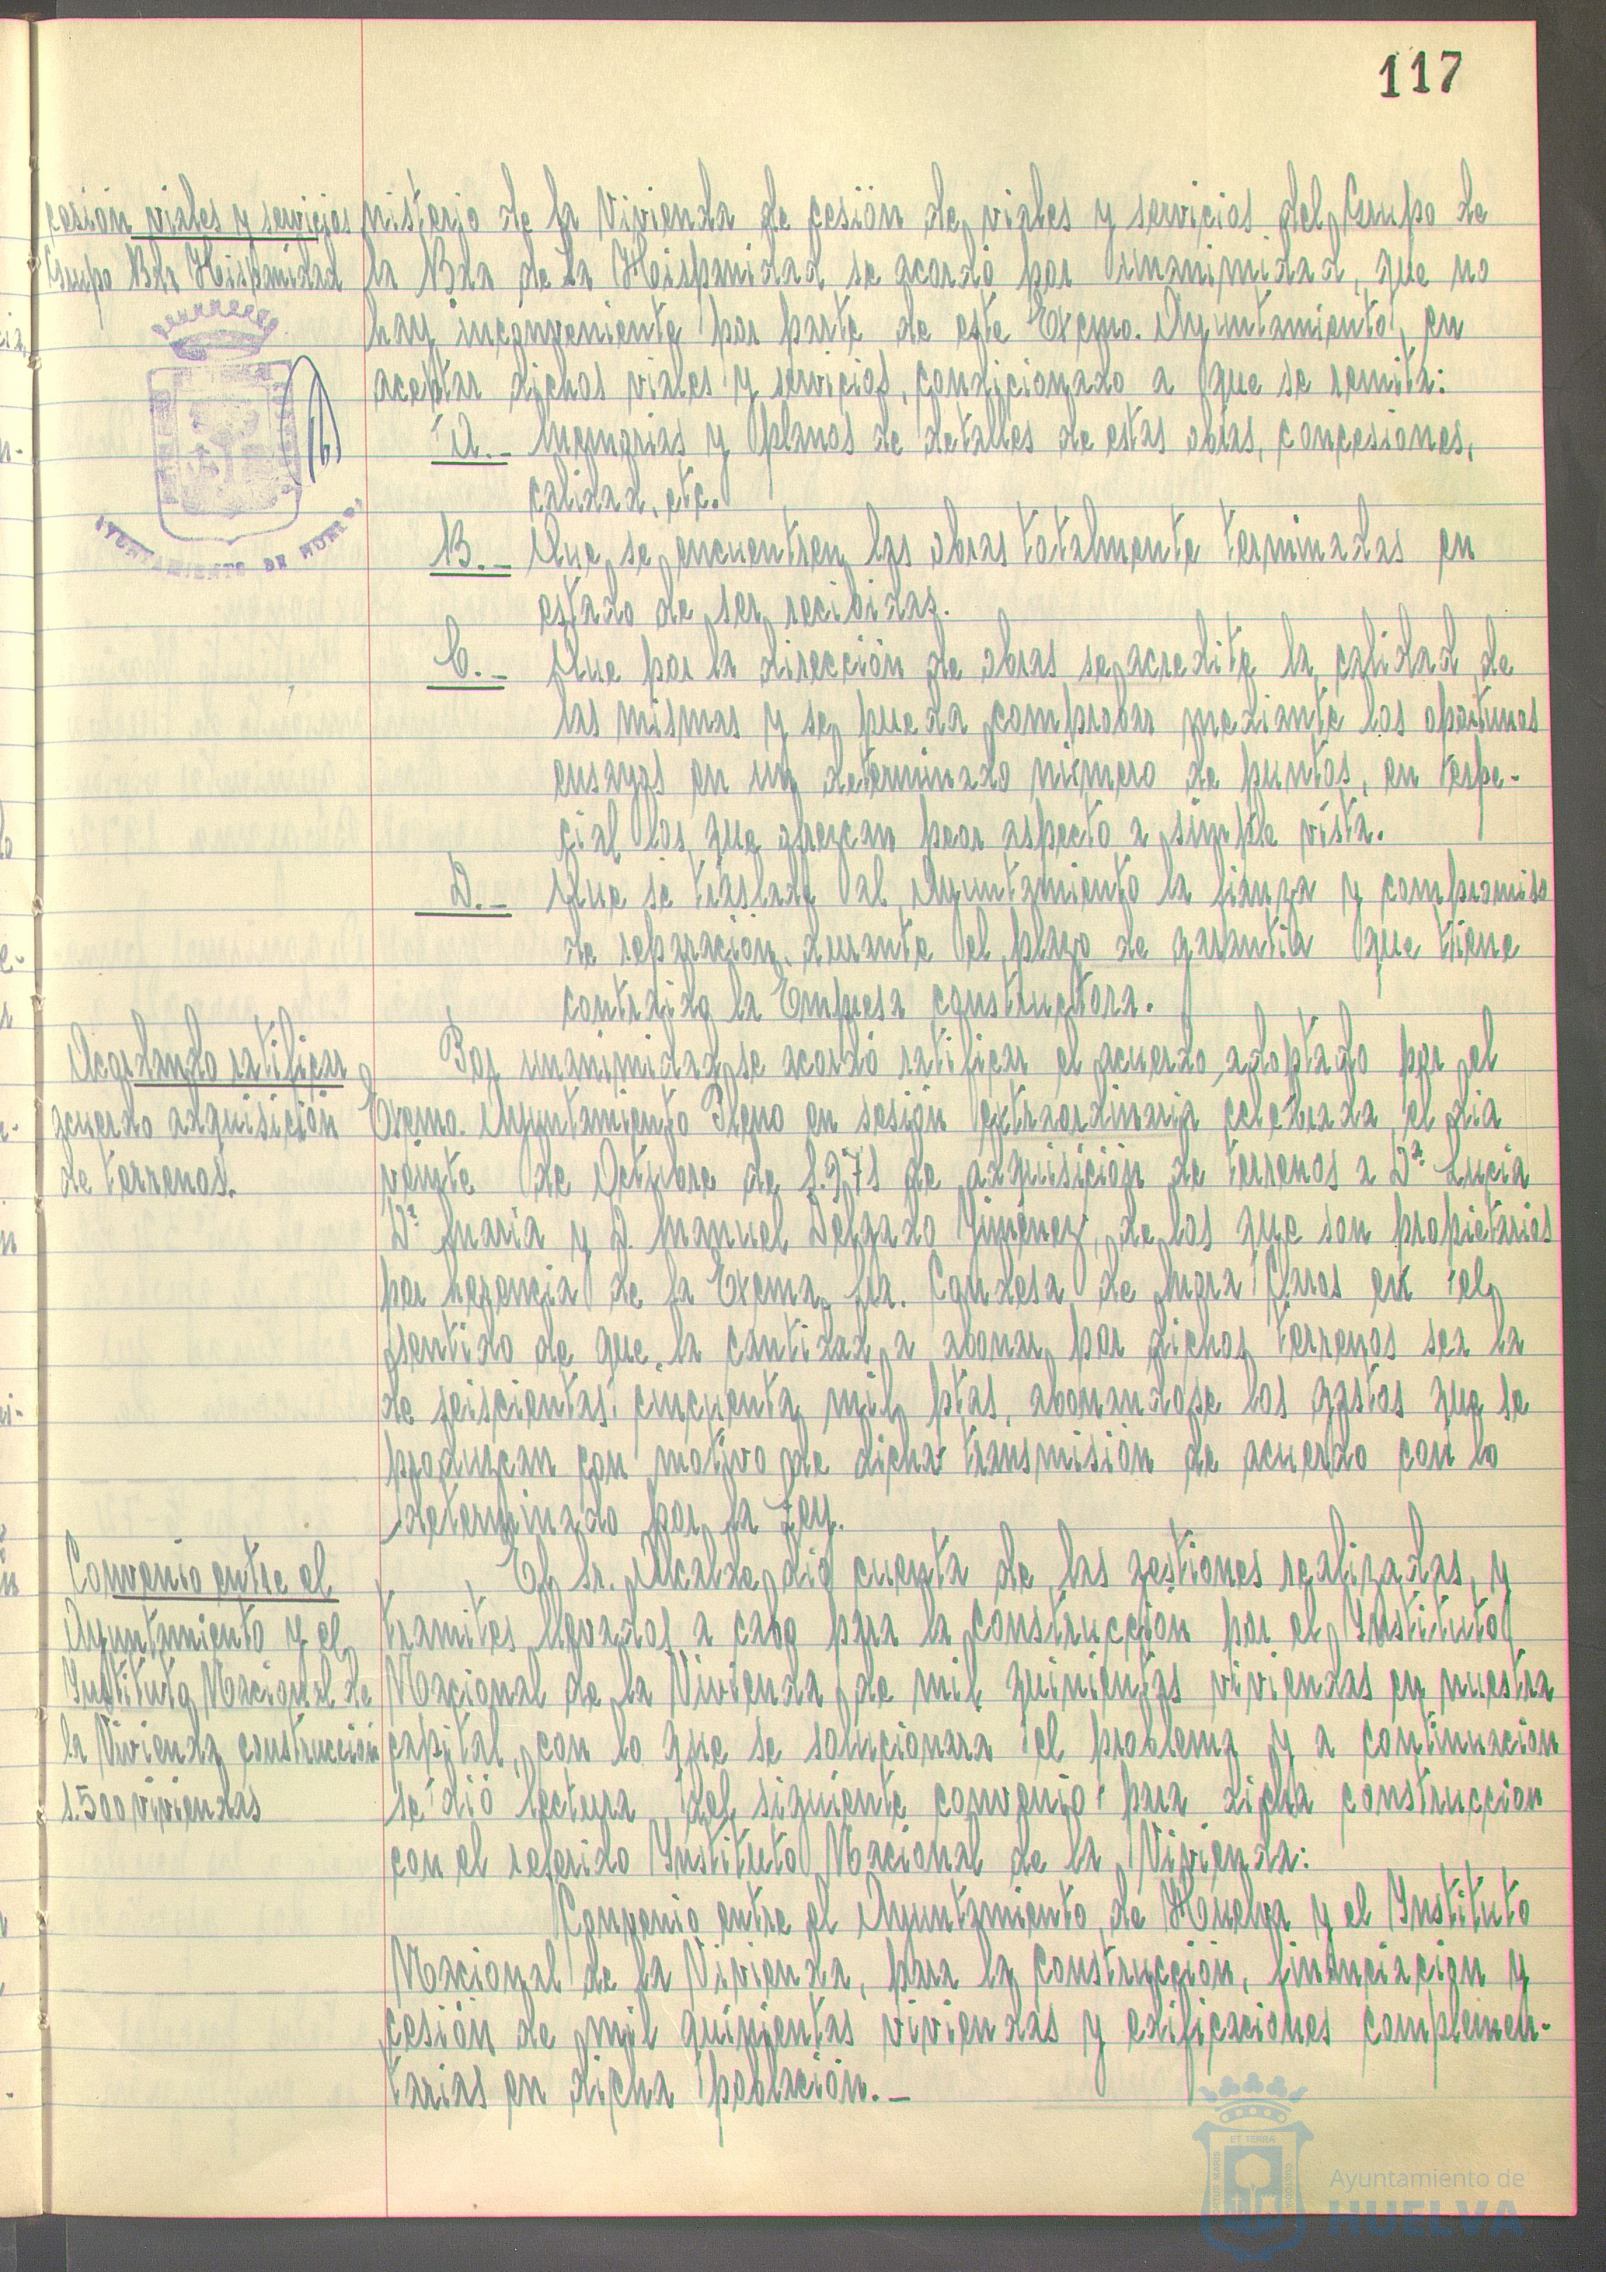 117
cesión viales y servicios
Grupo Bda Hispanidad
AYUNTAMIENTO DE HUELVA
nisterio de la Vivienda de cesión de viales y servicios del Grupo de
la Bda de la Hispanidad se acordó por unanimidad, que no
hay inconveniente por parte de este Excmo. Ayuntamiento, en
aceptar dichos viales y servicios, condicionado a que se remita:
A.- Memorias y planos de detalles de estas obras, concesiones,
calidad, etc.
B.- Que se encuentren las obras totalmente terminadas en
estado de ser recibidas.
C.- Que por la dirección de obras se acredite la calidad de
las mismas y se pueda comprobar mediante los oportunos
ensayos en un determinado número de puntos, en espe-
cial los que ofrezcan peor aspecto a simple vista.
D.- Que se traslade al Ayuntamiento la fianza y compromiso
de reparación durante el plazo de garantía que tiene
contraido la Empresa constructora.
Acordando ratificar
acuerdo adquisición
de terrenos.
Por unanimidad se acordó ratificar el acuerdo adoptado por el
Excmo. Ayuntamiento Pleno en sesión extraordinaria celebrada el dia
veinte de Octubre de 1.971 de adquisición de terrenos a Dª Lucia
Dª Maria y D. Manuel Delgado Jiménez, de los que son propietarios
por herencia de la Excma. Sra. Condesa de Mora Claros en el
sentido de que la cantidad a abonar por dichos terrenos sea la
de seiscientas cincuenta mil ptas, abonandose los gastos que se
produzcan con motivo de dicha transmisión de acuerdo con lo
determinado por la Ley.
Convenio entre el
Ayuntamiento y el
Instituto Nacional de
la Vivienda construcción
1.500 viviendas
El Sr. Alcalde dió cuenta de las gestiones realizadas, y
tramites llevados a cabo para la construcción por el Instituto
Nacional de la Vivienda de mil quinientas viviendas en nuestra
capital, con lo que se solucionara el problema y a continuacion
se dió lectura del siguiente convenio para dicha construccion
con el referido Instituto Nacional de la Vivienda:
Convenio entre el Ayuntamiento de Huelva y el Instituto
Nacional de la Vivienda, para la construcción, financiacion y
cesión de mil quinientas viviendas y edificaciones complemen-
tarias en dicha población.-
Ayuntamiento de
HUELVA